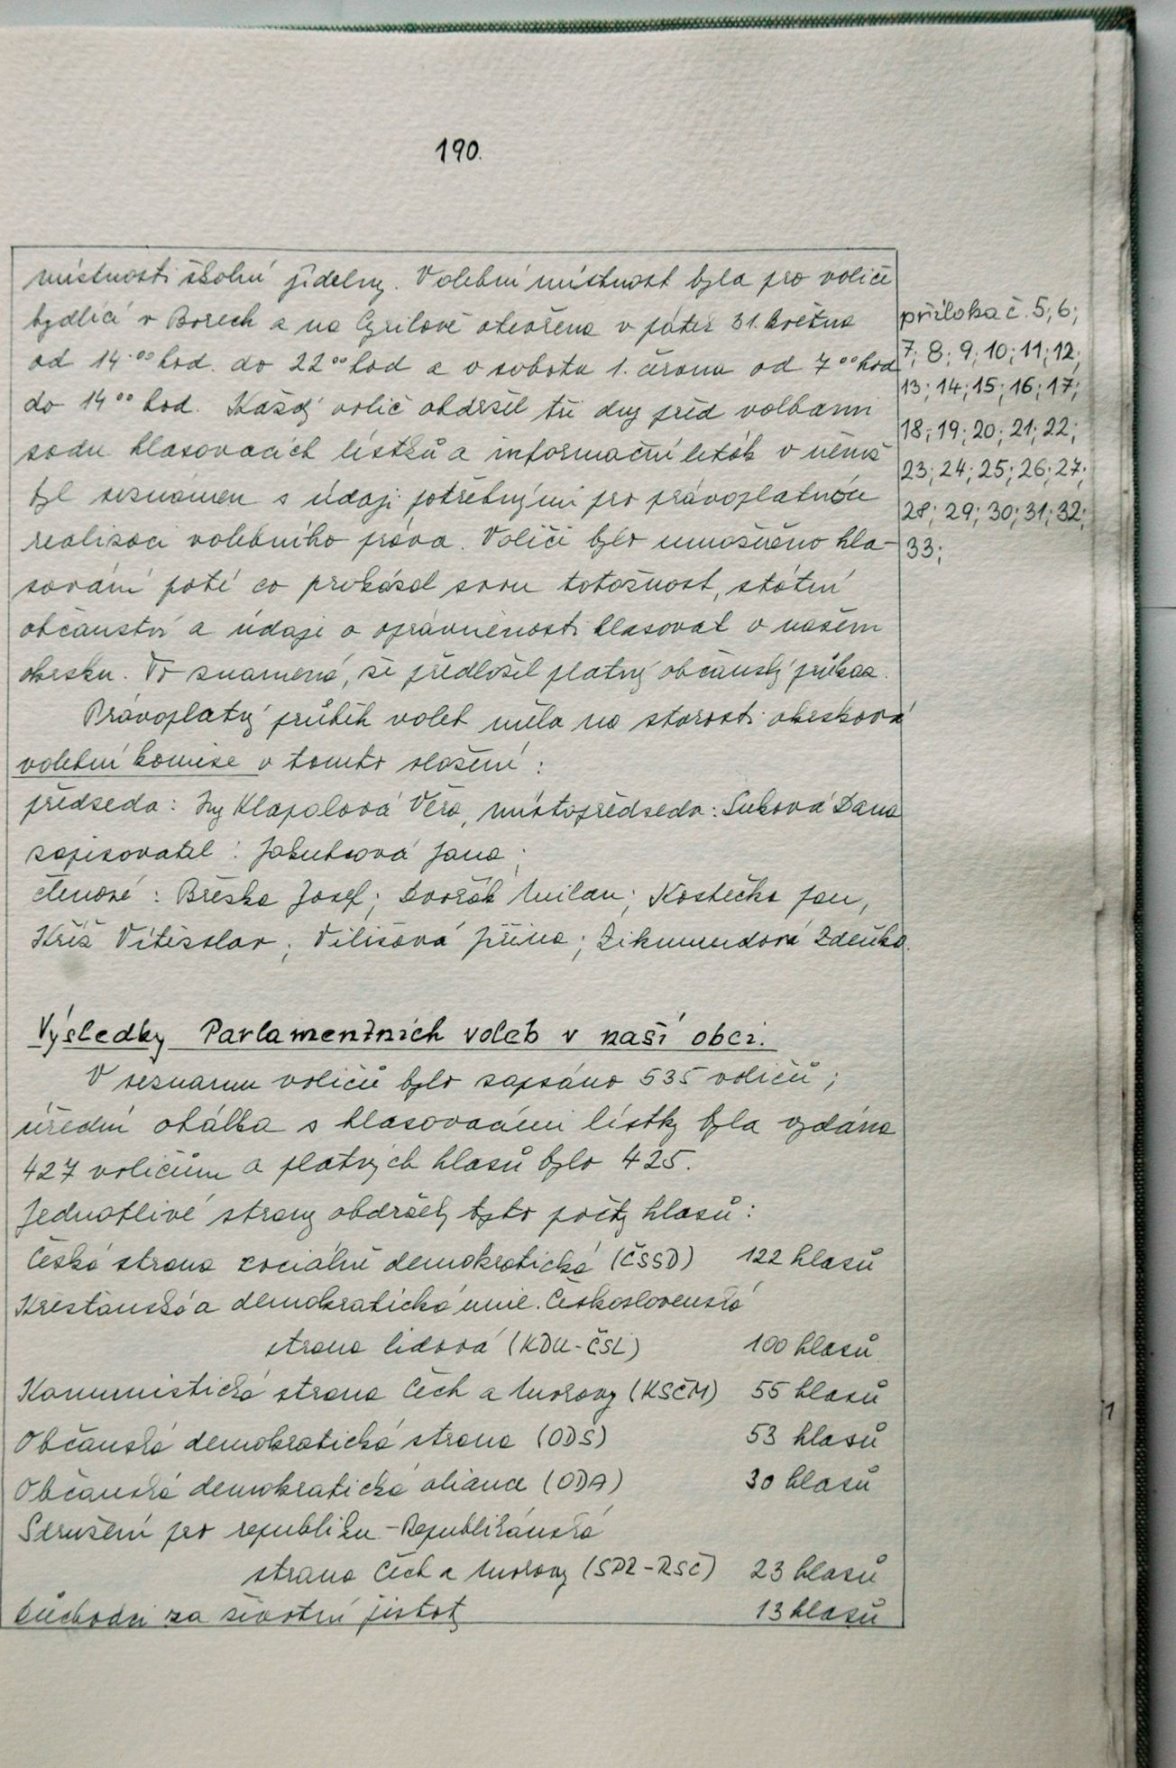 190.
místnosti školní jídelny. Volební místnost byla pro voliče
bydlící v Borech a na Cyrilově otevřena v pátek 31. května
od 14.00 hod. do 22 00 hod a v sobotu 1. června od 7 00 hod
do 14 00 hod. Každý volič obdržel tři dny před volbami
sadu hlasovacích lístků a informační leták v němž
byl seznámen s údaji potřebnými pro právoplatnou
realizaci volebního práva. Voliči bylo umožněno hla-
sování poté co prokázal svou totožnost, státní
občanství a údaje o oprávněnosti hlasovat v našem
okrsku. To znamená, že předložil platný občanský průkaz.
Právoplatný průběh voleb měla na starosti okrsková
volební komise v tomto složení:
předseda: Ing Klapalová Věra, místopředseda: Suková Dana
zapisovatel: Jakubcová Jana;
členové: Břeska Josef; Dvořák Milan; Kostečka Jan,
Kříž Vítězslav; Vilišová Jiřina; Zikmundová Zdeňka.
příloha č. 5; 6;
7; 8; 9; 10; 11; 12;
13; 14; 15; 16; 17;
18; 19; 20; 21; 22;
23; 24; 25; 26; 27;
28; 29; 30; 31; 32;
33;
Výsledky Parlamentních voleb v naší obci.
V seznamu voličů bylo zapsáno 535 voličů;
úřední obálka s hlasovacími lístky byla vydána
427 voličům a platných hlasů bylo 425.
Jednotlivé strany obdržely tyto počty hlasů:
Česká strana sociálně demokratická (ČSSD) 122 hlasů
Křesťanská a demokratická unie. Československá
strana lidová (KDU-ČSL) 100 hlasů
Komunistická strana Čech a Moravy (KSČM) 55 hlasů
Občanská demokratická strana (ODS) 53 hlasů
Občanská demokratická aliance (ODA) 30 hlasů
Sdružení pro republiku - Republikánská
strana Čech a Moravy (SPR-RSČ) 23 hlasů
Důchodci za životní jistoty 13 hlasů